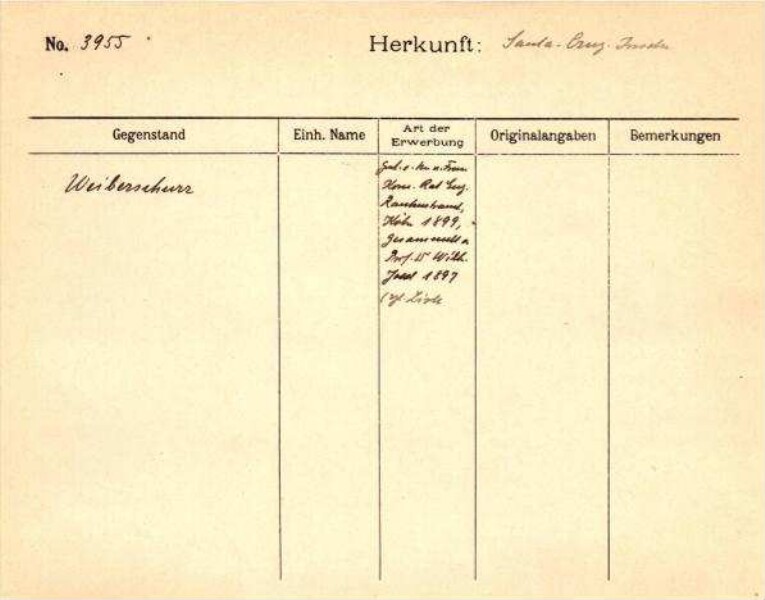 No. 3955
Herkunft: Santa-Cruz-Inseln
Gegenstand
Einh. Name
Art der
Erwerbung
Originalangaben
Bemerkungen
Weiberschurz
Kom. Rat Eug.
Rautenstrauch,
Köln 1899,
Gesammelt v.
Prof. Dr Wilh.
Joest 1897